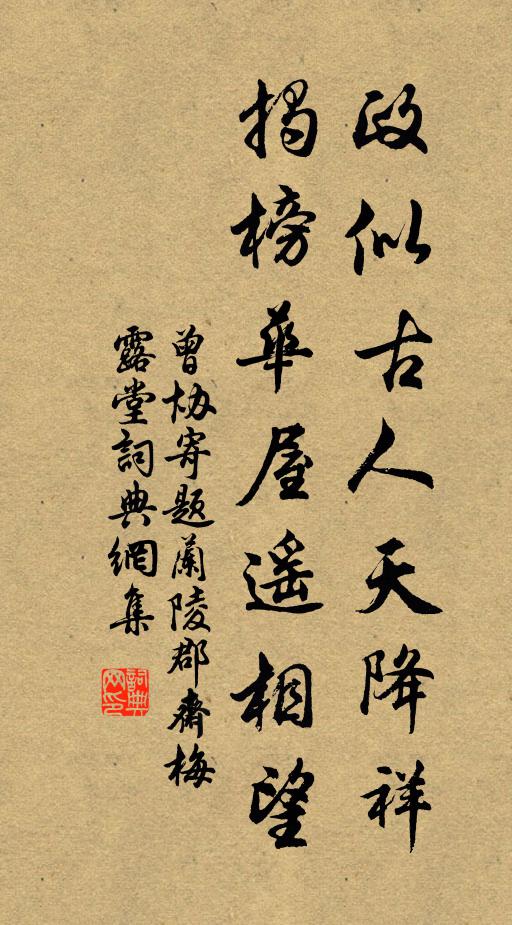 政似古人天降祥
揭榜華屋遥相望
曾協寄題蘭陵郡齋梅
露堂詞典網集
詞典网印